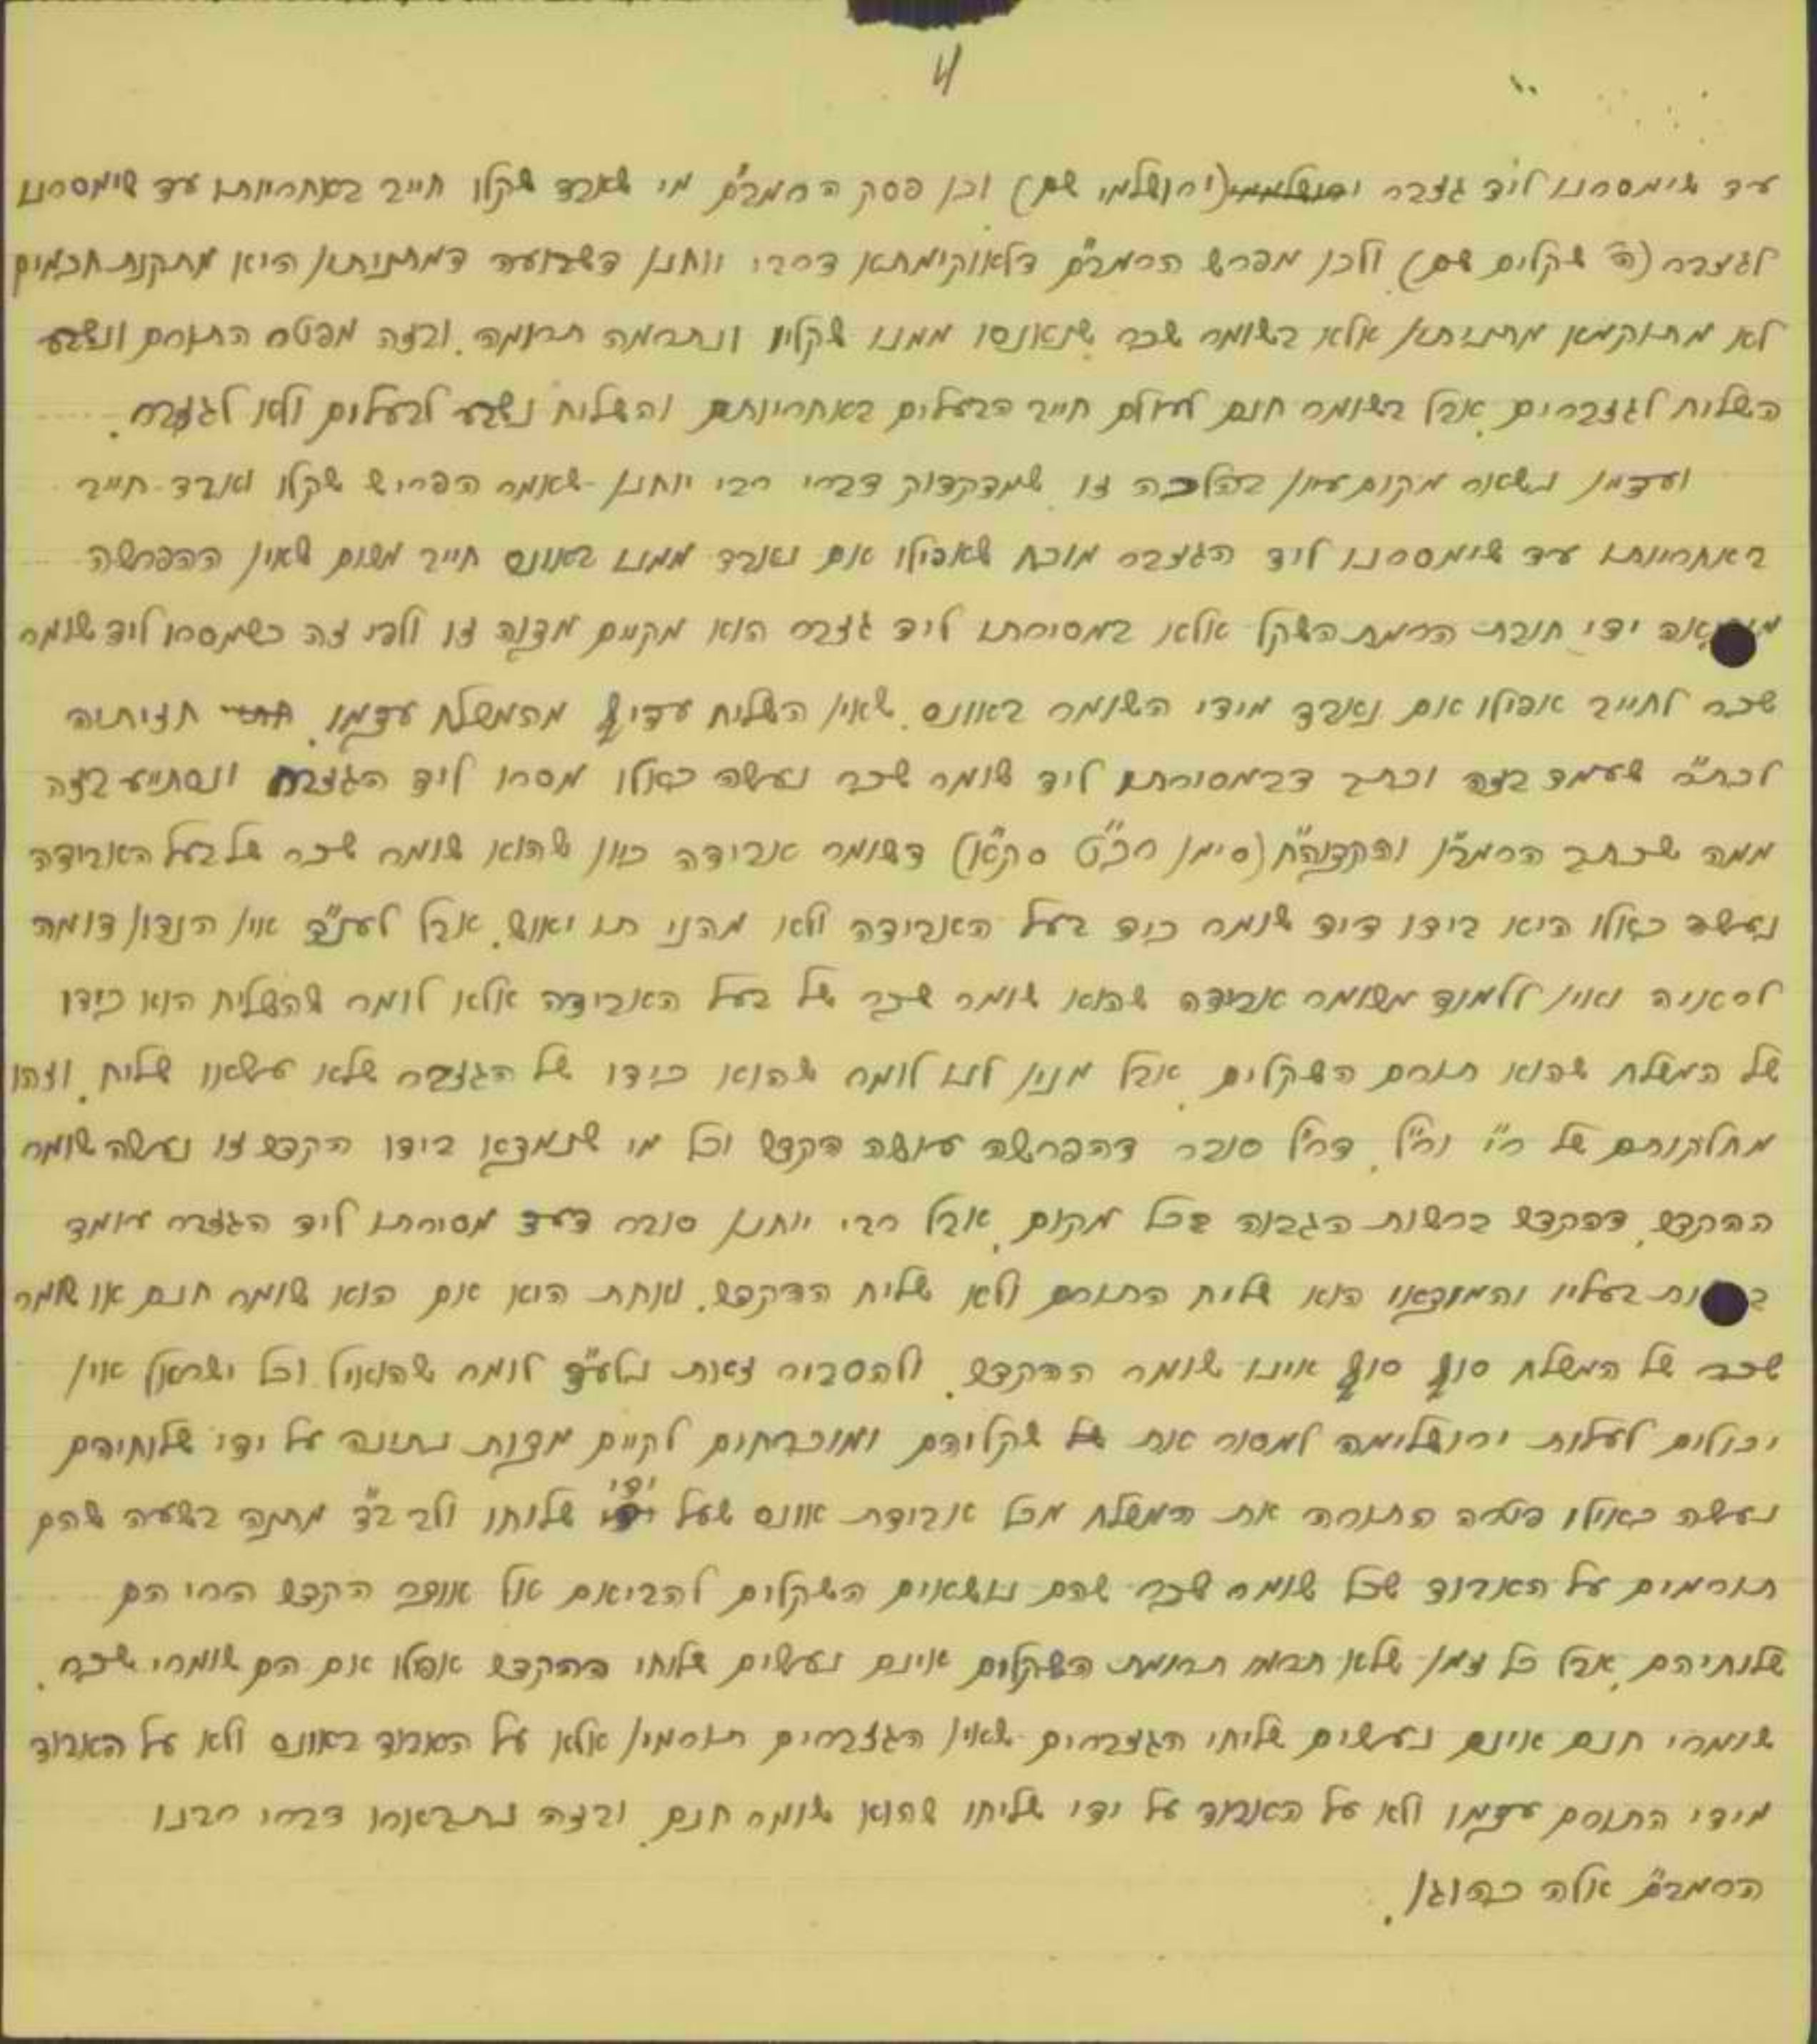 4
עד שימסרנו ליד גזבר (ירושלמי שם) וכן פסק הרמב"ם מי שאבד שקלו חייב באחריותו עד שימסרנו
לגזבר (ה' שקלים שם) ולכן מפרש הרמב"ם דלאוקימתא דרבי יוחנן דשבועה דמתניתא היא מתקנת חכמים
לא מתוקמא מתניתא אלא בשומר שכר שנאנסו ממנו שקליו ונתרמה תרומה. ובזה מפטר התורם ונשבע
השליח לגזברים. אבל בשומר חנם לעולם חייב הבעלים באחריותם והשליח נשבע לבעלים ולא לגזבר.
ועדמן נשאר מקום עיון בהלכה זו שמדקדוק דברי רבי יוחנן שאמר הפריש שקלו ואבד חייב
באחריותו עד שימסרנו ליד הגזבר מוכח שאפילו אם נאבד ממנו באונס חייב משום שאין ההפרשה
ידי חובת הרמת השקל אלא במסירתו ליד גזבר הוא מקיים מצוה זו ולפי זה כשמסרו ליד שומר
שכר לחייב אפילו אם נאבד מידי השומר באונס. שאין השליח עדיף מהמשלח עצמו. חזיתיה
לכת"ר שעמד בזה וכתב דבמסירתו ליד שומר שכר נעשה כאלו מסרו ליד הגזבר ונסתייע בזה
ממה שכתב הרמב"ן והקצוה"ח (סימן רכ"ט סק"א) דשומר אבידה כיון שהוא שומר שכר של בעל האבידה
נעשה כאלו היא בידו דיד שומר כיד בעל האבידה ולא מהני תו יאוש. אבל לענ"ד אין הנדון דומה
לראיה ואין ללמוד משומר אבידה שהוא שומר שכר של בעל האבידה אלא לומר שהשליח הוא כידו
של המשלח שהוא תורם השקלים. אבל מנין לנו לומר שהוא כידו של הגזבר שלא עשאו שליח. וזהו
מחלקותם של ר"י ור"ל, דר"ל סובר דהפרשה עושה הקדש וכל מי שנמצאו בידו הקדש זו נעשה שומר
ההקדש, דהקדש ברשות הגבוה בכל מקום, אבל רבי יוחנן סובר דעד מסירתו ליד הגזבר עומד
בעליו והמוצאו הוא שליח התורם ולא שליח ההקדש. ואחת היא אם הוא שומר חנם או שומר
שכר של המשלח סוף סוף אינו שומר ההקדש. ולהסביר זאת נלע"ד לומר שהואיל וכל ישראל אין
יכולים לעלות ירושלימה למסור את שקליהם ומוכרחים לקיים מצות נתינה על ידי שלוחיהם
נעשה כאילו פטרה התורה את המשלח מכל אבידת אונס שעל ידי שלוחו ולב ב"ד מתנה בשעה שהם
תורמים על האבוד שכל שומר שכר שהם נושאים השקלים להביאם אל אוצר הקדש הרי הם
שלוחיהם, אבל כל זמן שלא תרמו תרומת השקלים אינם נעשים שלוחי ההקדש אפילו אם הם שומרי שכר.
שומרי חנם אינם נעשים שליחי הגזברים שאין הגזברים תורמין אלא על האבוד באונס ולא על האבוד
מידי התורם עצמו ולא על האבוד על ידי שליחו שהוא שומר חנם. ובזה נתבארו דברי רבנו
הרמב"ם אלה כהוגן.